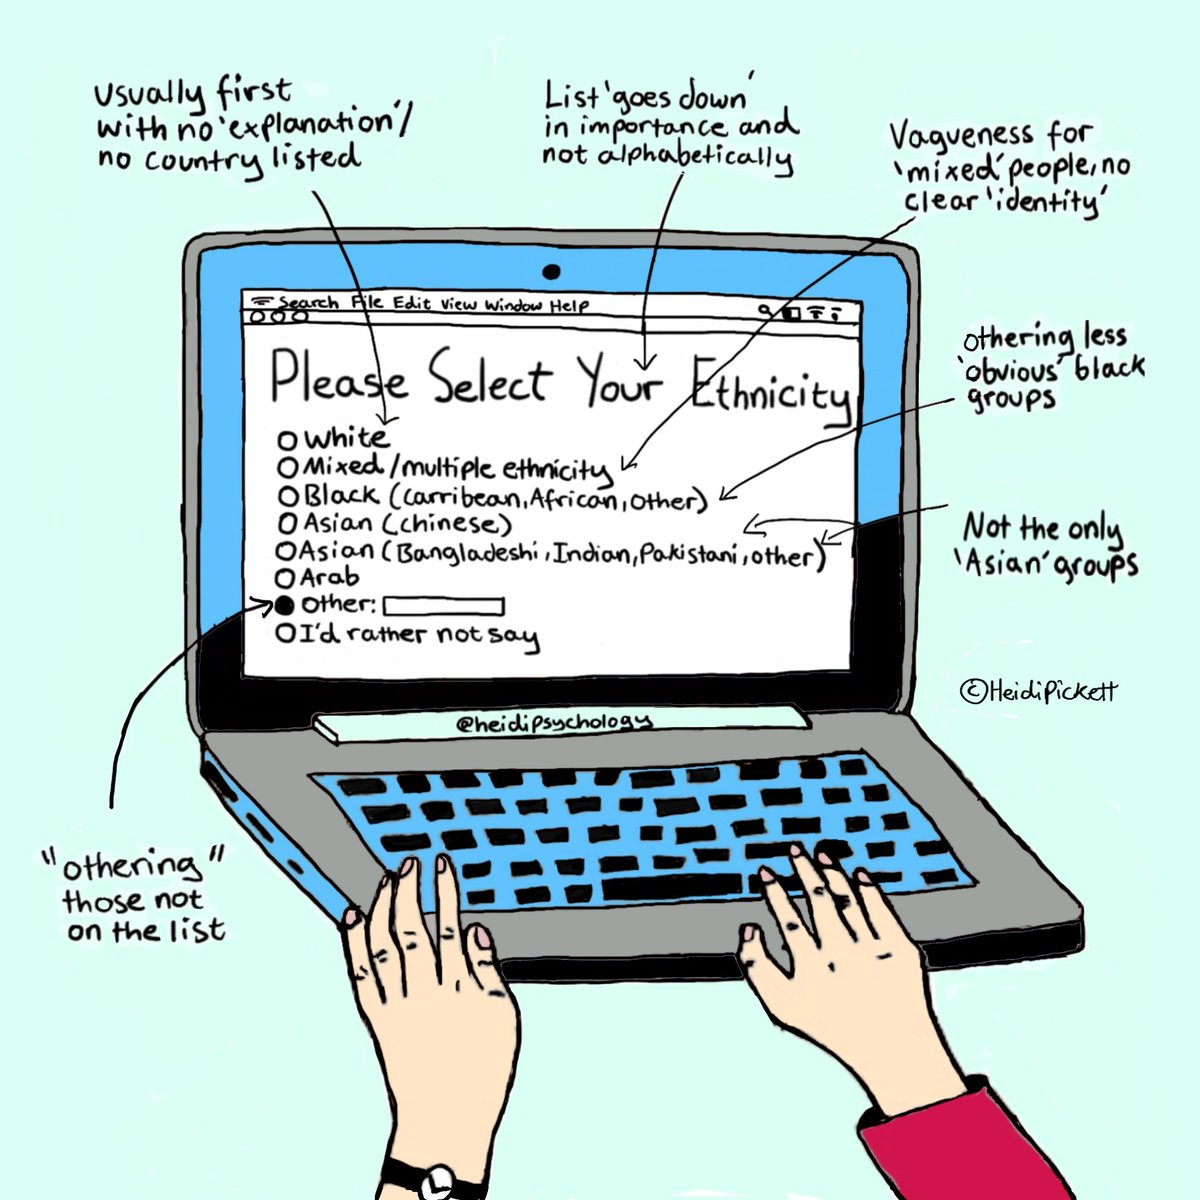 Usually first
with no 'explanation'/
no country listed
List 'goes down'
in importance and
not alphabetically
Vagueness for
'mixed' people, no
clear 'identity'
Search File Edit View Window Help
Please Select Your Ethnicity
White
Mixed/multiple ethnicity
Black (Carribean, African, Other)
Asian (Chinese)
Asian (Bangladeshi, Indian, Pakistani, other)
Arab
Other:
I'd rather not say
othering less
'obvious' black
groups
Not the only
'Asian' groups
©HeidiPickett
@heidipsychology
"othering"
those not
on the list